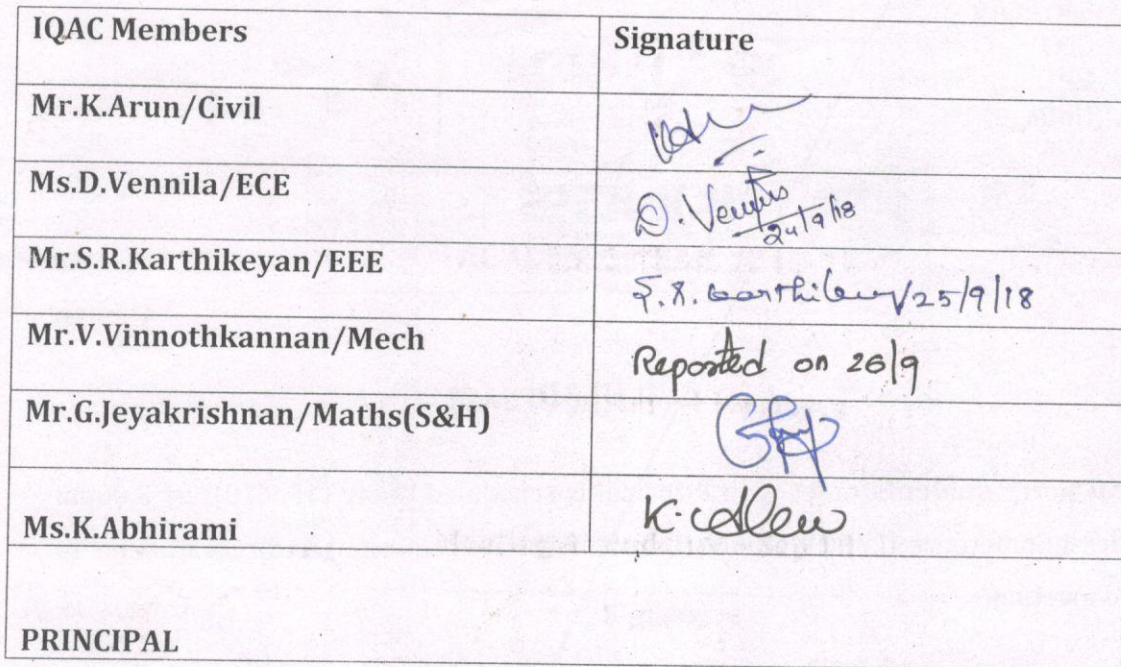 IQAC Members Signature
Mr.K.Arun/Civil
Ms.D.Vennila/ECE D.
24/9/18
Mr.S.R.Karthikeyan/EEE 25/9/18
Mr.V.Vinnothkannan/Mech Reported on 26/9
Mr.G.Jeyakrishnan/Maths(S&H)
Ms.K.Abhirami K.
PRINCIPAL